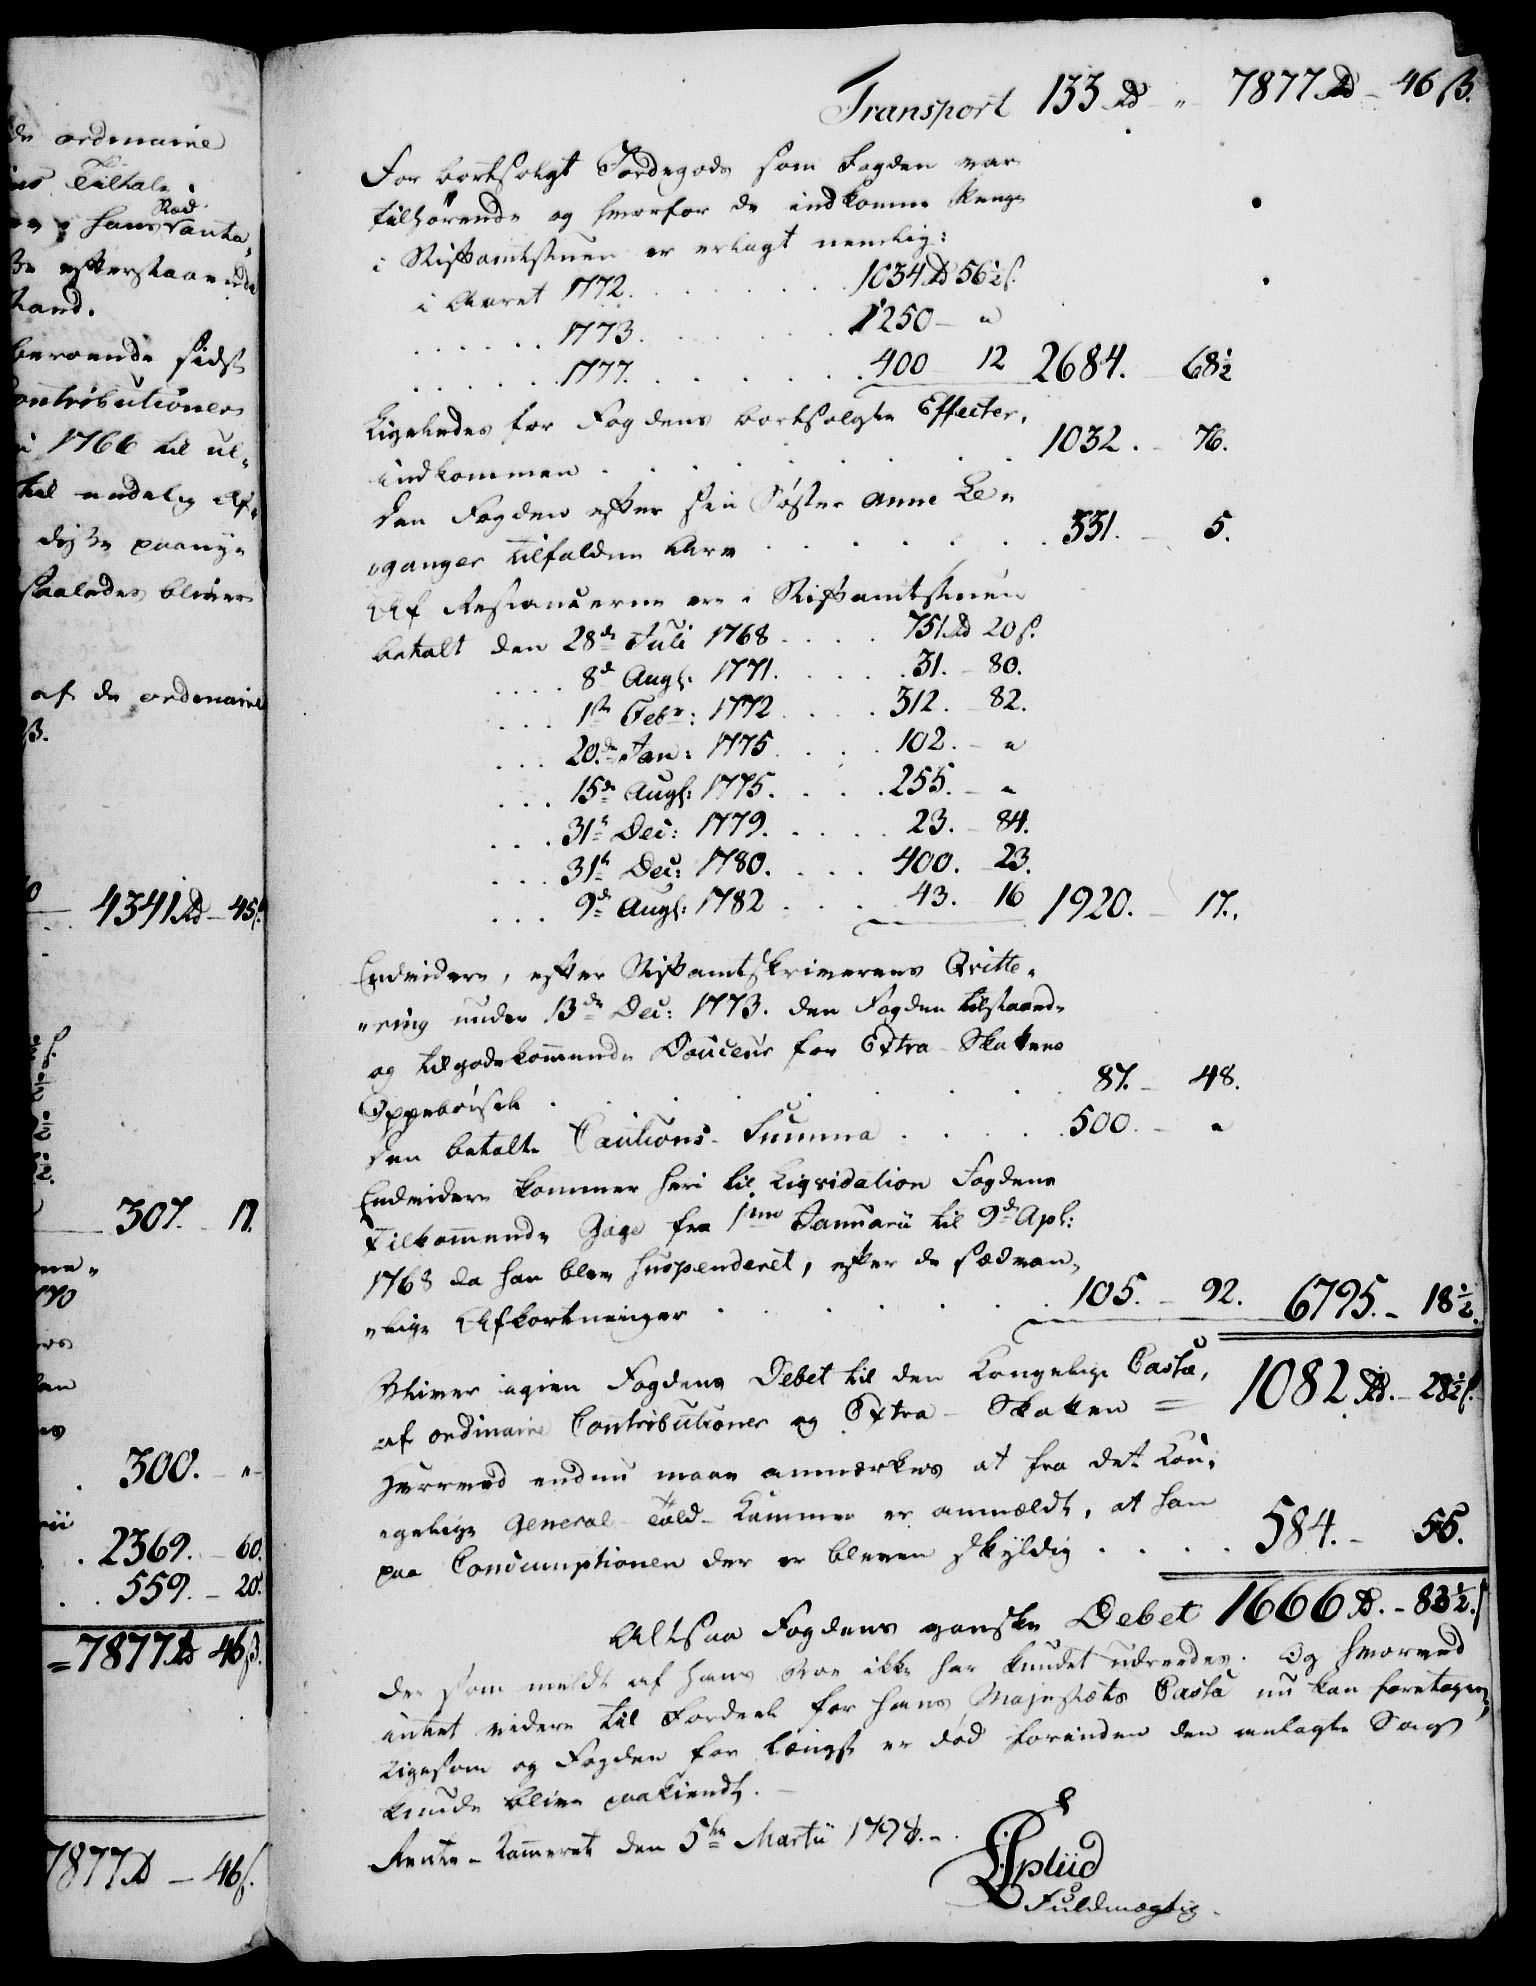 de ordinaire
Tiltale
Hans Rød
efterstaaende
stand.
beroende sidst
Contributioner
1766 til ul-
til endelig Af-
disse paany-
saaledes bliver
af de ordinaire
ß.
4341 Rd – 45 ß.
307. – 17.
300. – "
2369. – 60.
559. – 20.
= 7877 Rd 46 ß.
7877 Rd – 46 ß.
Transport 133 Rd – " – 7877 Rd – 46 ß.
For bortsolgt Jordegods som Fogden var
tilhørende og hvorfor de indkomne Penge
i Stiftamtstuen er erlagt nemlig:
i Aaret 1772. . . . . 1034 Rd 56½ ß.
. . . . . 1773. . . . . 1250 – "
. . . . . 1777. . . . . 400 12 2684. – 68½
Ligeledes for Fogdens bortsolgte Effecter,
indkommen . . . . . 1032. – 76.
den Fogden efter sin Søster Anne Le-
ganger tilfaldne Arv . . . . . 331. – 5.
Af Restancerne ere i Stiftamtstuen
betalt den 28de Juli 1768 . . . . 751 Rd 20 ß.
. . . . 8de Augs: 1771. . . . . 31. – 80.
. . . 1ste Febr: 1772 . . . . 312. – 82.
. . . 20de Jan: 1775 . . . . 102. – "
. . . 15de Augs: 1775. . . . . 255. – "
. . . 31te Dec: 1779. . . . . 23. – 84.
. . . 31te Dec: 1780. . . . . 400. 23.
. . . 9de Augs: 1782 . . . . 43. 16 1920. – 17.
Endvidere, efter Stiftamtskriverens Qvitte-
"ring under 13de Dec: 1773. den Fogden tilstaaede
og tilgodekommende Douceur for Extra-Skattens
Oppebørsel . . . . . 87. – 48.
den betalte Cautions-Summa . . . . . 500. – "
Endvidere kommer heri til Liqvidation Fogdens
tilkommende Gage fra 1mo Januarii til 9de Apl:
1768 da han blev suspenderet, efter de sædvan-
"lige Afkortninger . . . . . 105. – 92. 6795. – 18½.
Bliver igien Fogdens Debet til den Kongelige Cassa,
af ordinaire Contributioner og Extra-Skatten = 1082 Rd. – 28½ ß.
Herved endnu maae anmærkes at fra det Kon-
gelige General-Told-Kammer er anmældt, at han
paa Consumptionen der er bleven skyldig . . . . 584. – 55.
Altsaa Fogdens ganske Debet 1666 Rd. – 83½ ß
der som meldt af hans Boe ikke har kundet udredes. Og hvorved
intet videre til Fordeel for Hans Majestæts Cassa nu kan foretages,
ligesom og Fogden for længst er død forinden den anlagte Sag
kunde blive paakiendt. –
Rente-Kammeret den 5te Martii 1798. –
Spliid
Fuldmægtig.